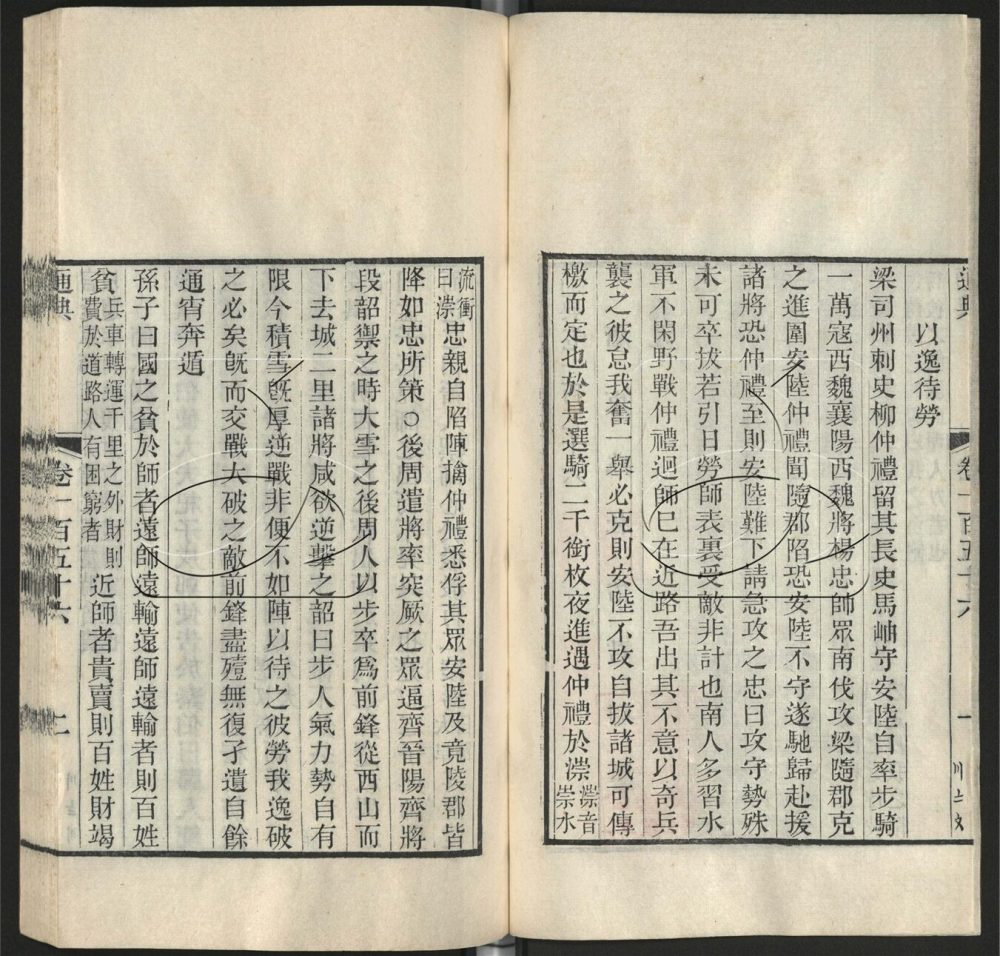 通典
卷一百五十六
一
以逸待勞
梁司州刺史柳仲禮留其長史馬岫守安陸自率步騎
一萬寇西魏襄陽西魏將楊忠師眾南伐攻梁隨郡克
之進圍安陸仲禮聞隨郡陷恐安陸不守遂馳歸赴援
諸將恐仲禮至則安陸難下請急攻之忠曰攻守勢殊
未可卒拔若引日勞師表裏受敵非計也南人多習水
軍不閑野戰仲禮迴師已在近路吾出其不意以奇兵
襲之彼怠我奮一舉必克則安陸不攻自拔諸城可傳
檄而定也於是選騎二千銜枚夜進遇仲禮於漴漴音
崇水
流衝
曰漴忠親自陷陣擒仲禮悉俘其眾安陸及竟陵郡皆
降如忠所策○後周遣將率突厥之眾逼齊晉陽齊將
段韶禦之時大雪之後周人以步卒爲前鋒從西山而
下去城二里諸將咸欲逆擊之韶曰步人氣力勢自有
限今積雪既厚逆戰非便不如陣以待之彼勞我逸破
之必矣既而交戰大破之敵前鋒盡殪無復孑遺自餘
通宵奔遁
孫子曰國之貧於師者遠師遠輸遠師遠輸者則百姓
貧兵車轉運千里之外財則
費於道路人有困窮者近師者貴賣則百姓財竭
通典
卷一百五十六
二